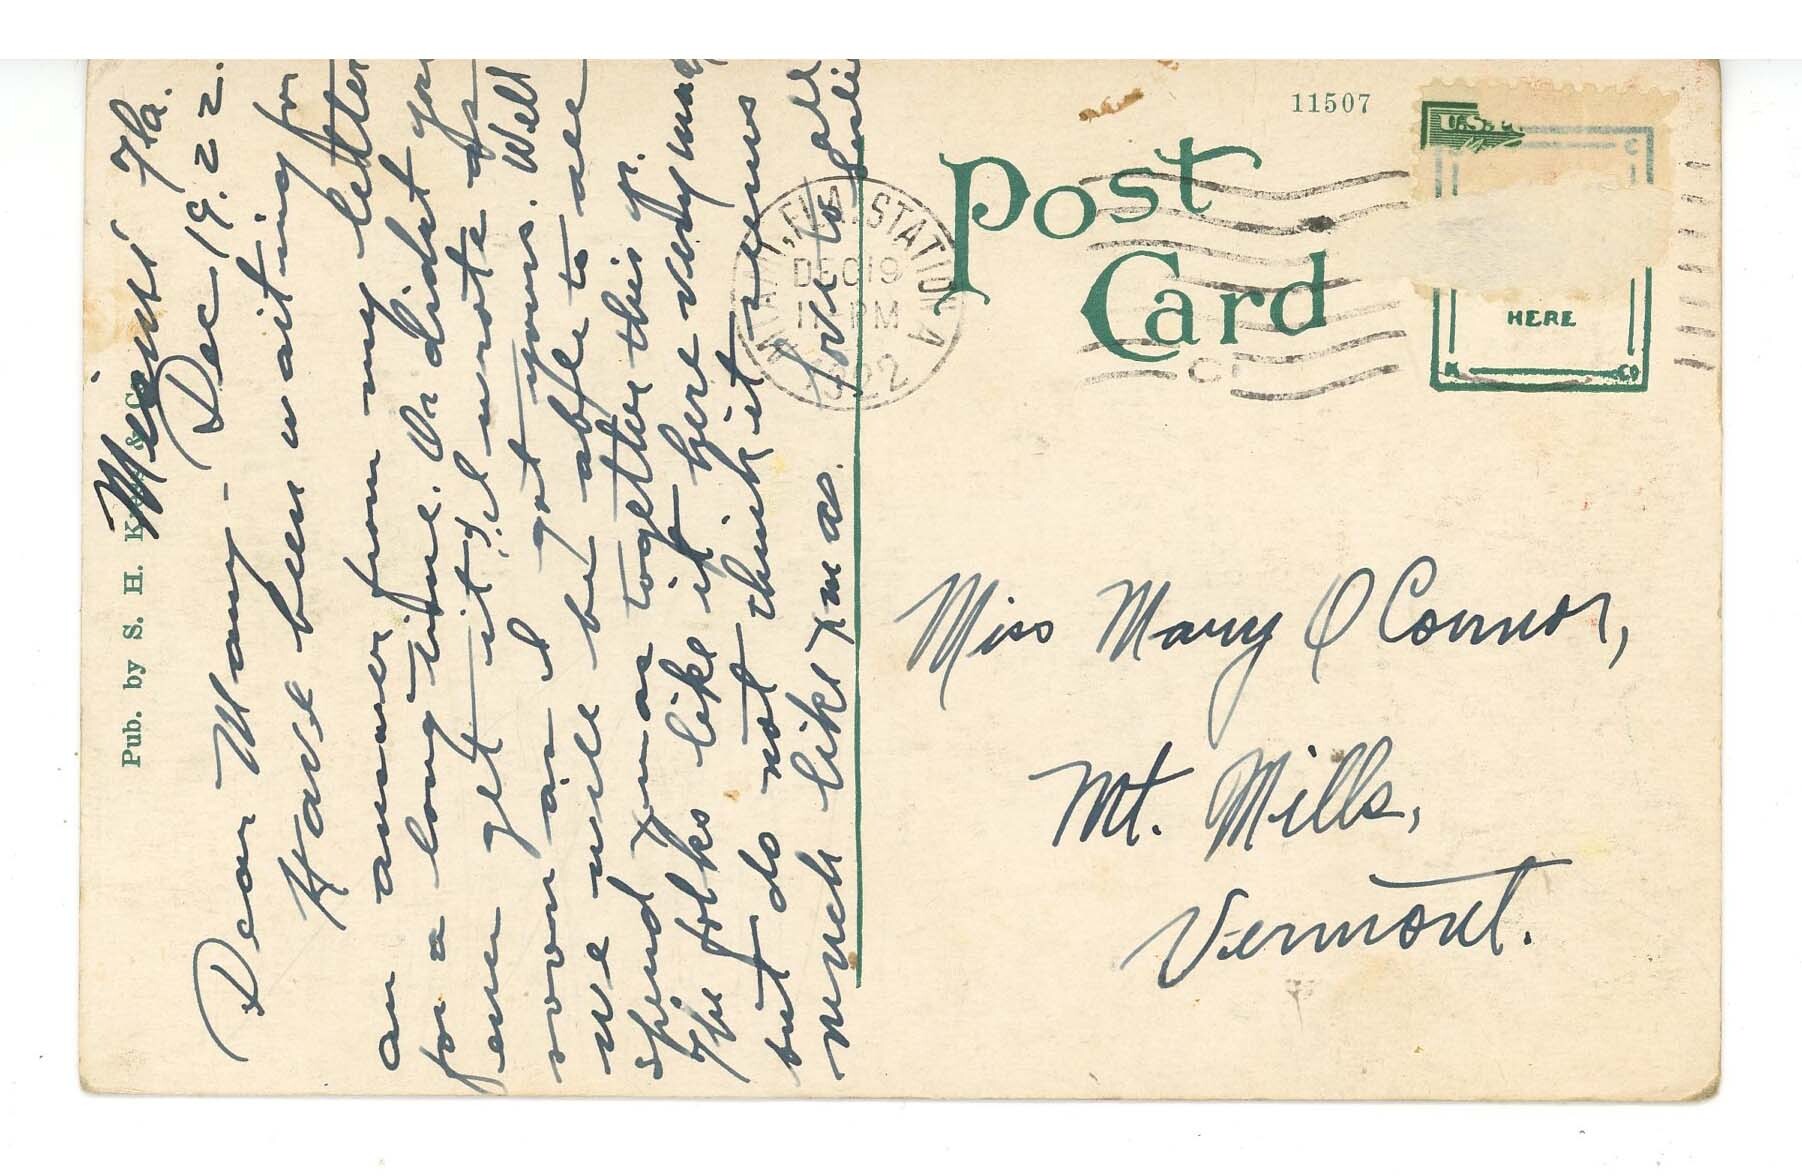 Miami Fla.
Dec 19. 22.
Dear Mary -
Have been waiting for
an answer from my letter
for a long time. Or didnt you
ever get it? I wrote as
soon as I got yours. Well
we will be able to all
spend Xmas together this yr.
The folks like it here very much
but do not think it seems
much like Xmas.
Love to all
Pub. by S. H. Kress & Co.
11507
Post
Card
MIAMI, FLA. STATION A
DEC 19
PM
1922
U.S.
HERE
Miss Mary O'Connor,
Mt. Mills,
Vermont.